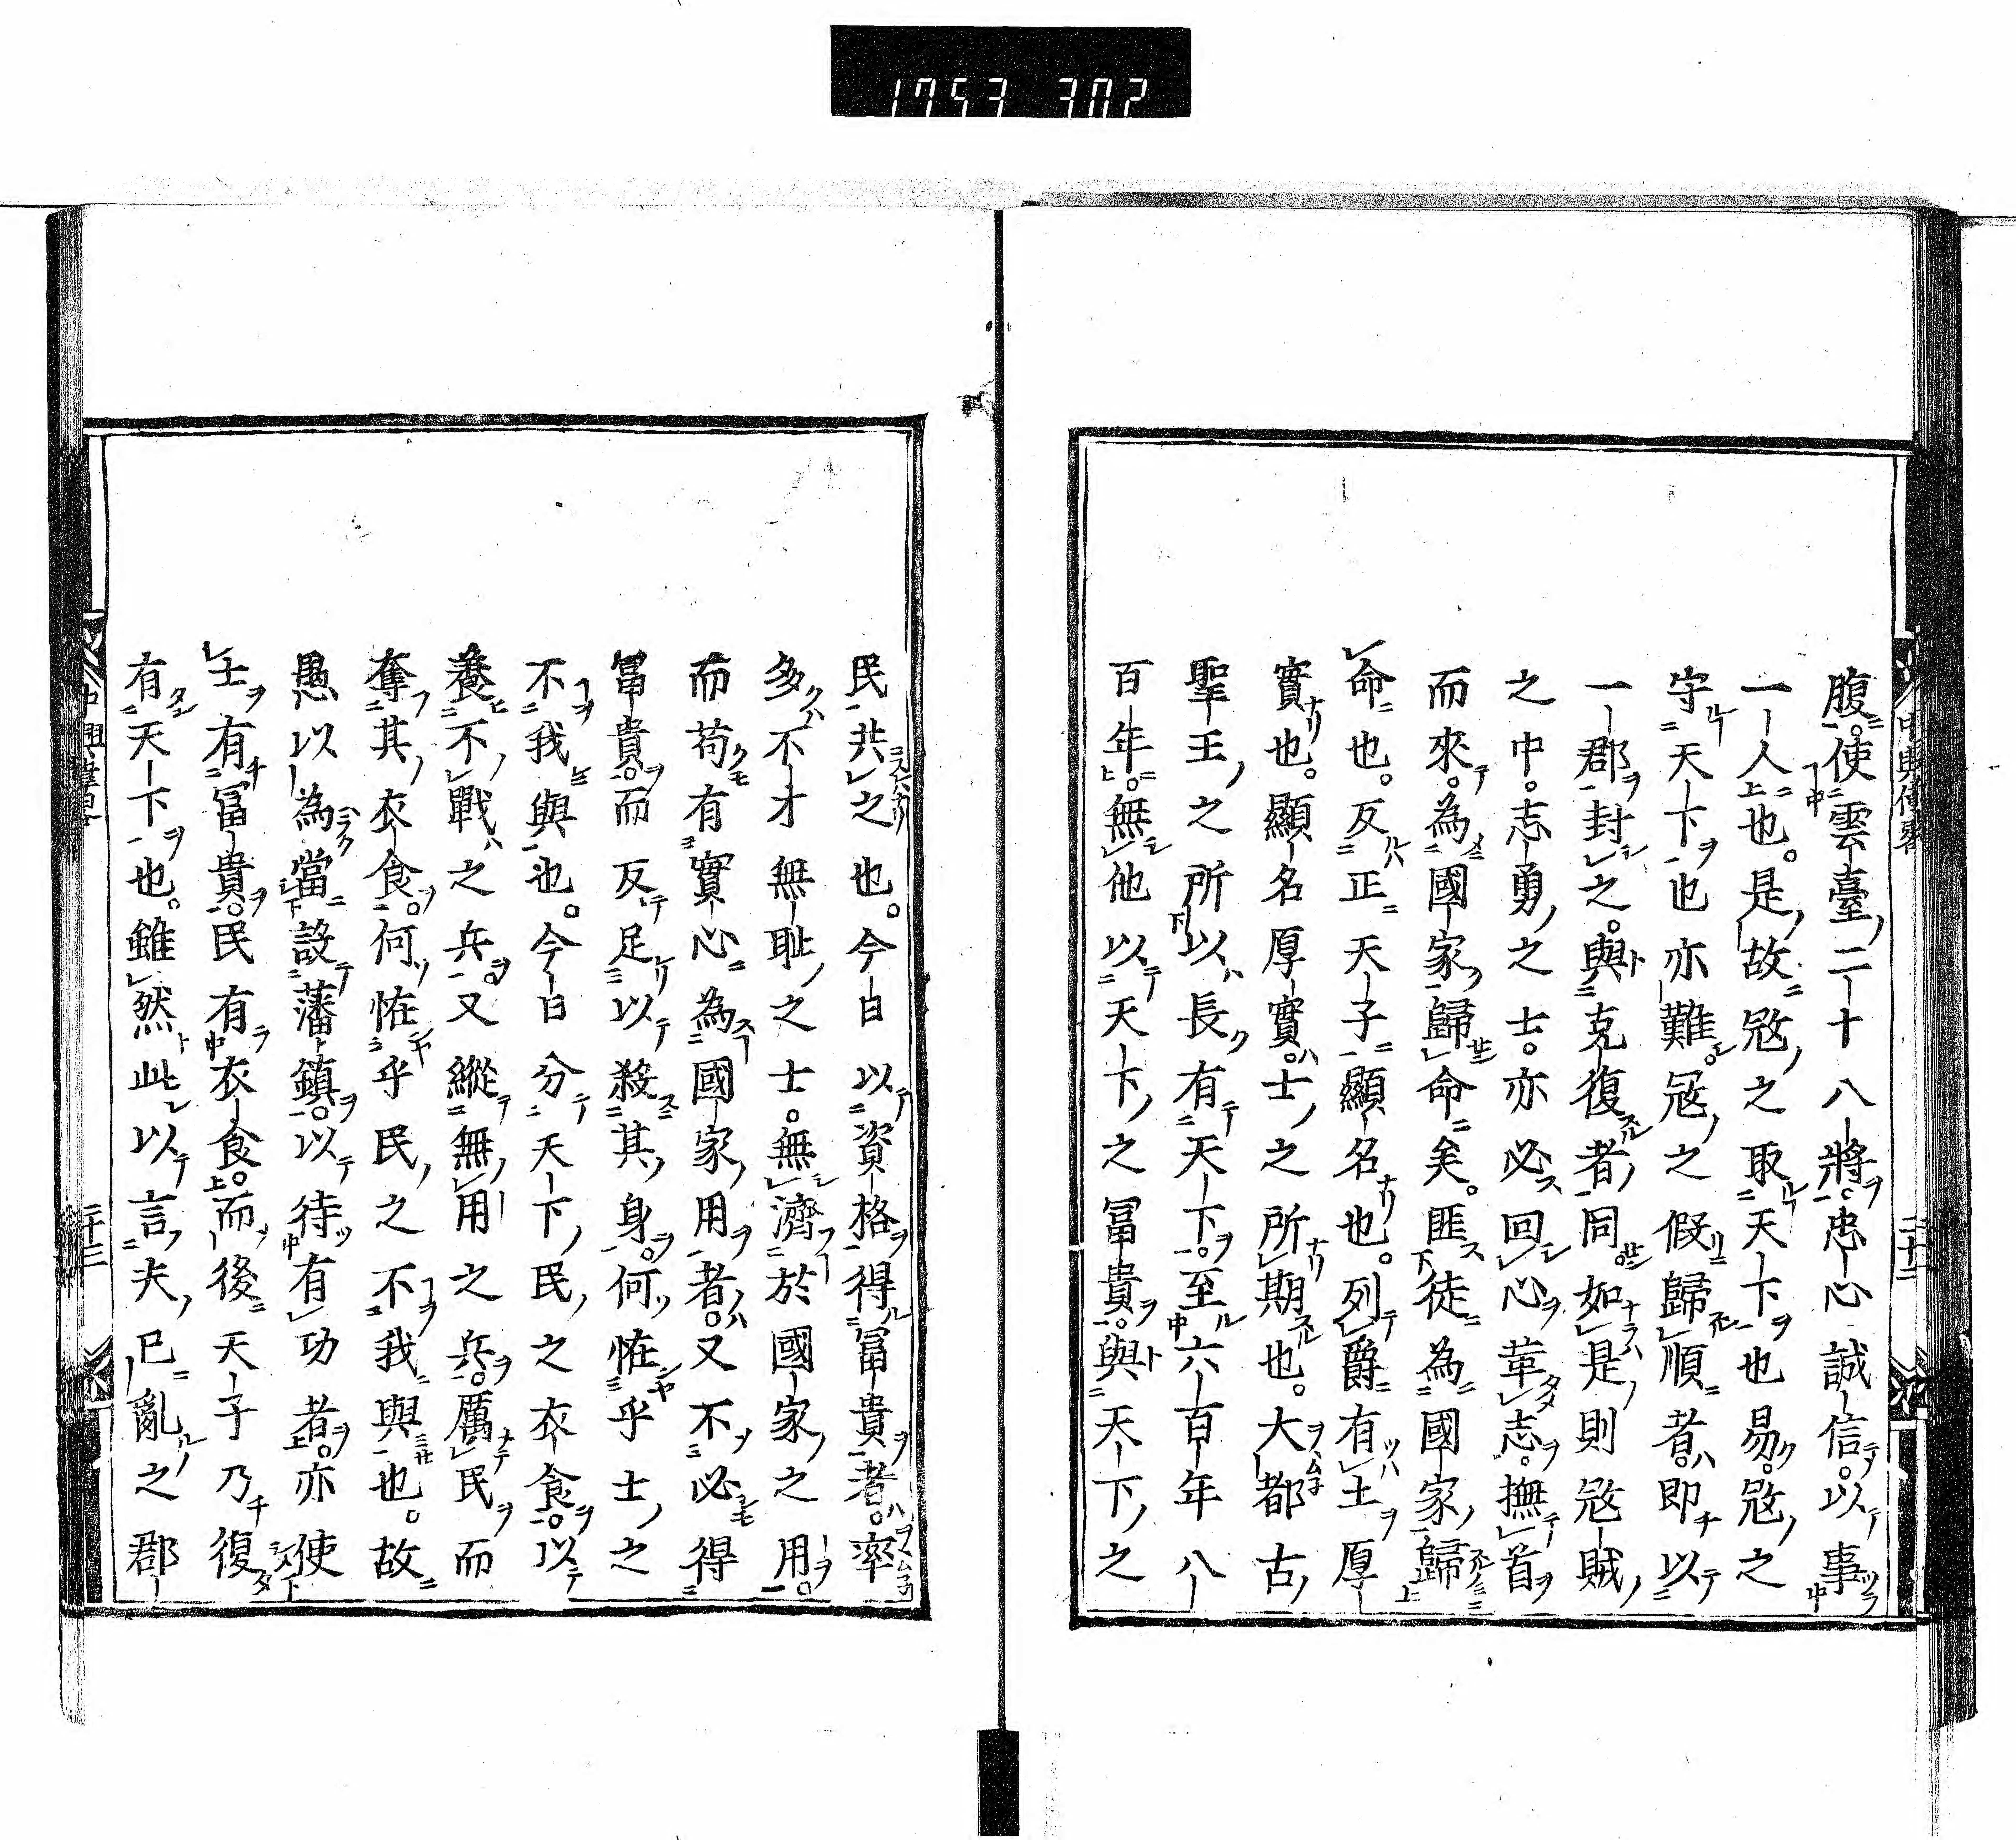 1753 302
腹。使雲臺二十八將。忠心誠信。以事
一人也。是故寇之取天下也易。寇之
守天下也亦難。寇之假歸順者。即以
一郡封之。與克復者同。如是則寇賊
之中。志勇之士。亦必回心革志。撫首
而來。為國家歸命矣。匪徒為國家歸
命也。反正天子顯名也。列爵有土厚
實也。顯名厚實。士之所期也。大都古
聖王之所以長有天下。至六百年八
百年。無他以天下之冨貴。與天下之
民共之也。今日以資格得冨貴者。率
多不才無耻之士。無濟於國家之用。
而苟有實心為國家用者。又不必得
冨貴。而反足以殺其身。何恠乎士之
不我與也。今日分天下民之衣食。以
養不戰之兵。又縱無用之兵。厲民而
奪其衣食。何恠乎民之不我與也。故
愚以為當設藩鎮。以待有功者。亦使
士有冨貴。民有衣食。而後天子乃復
有天下也。雖然此以言夫已亂之郡
中興偉畧
二十三